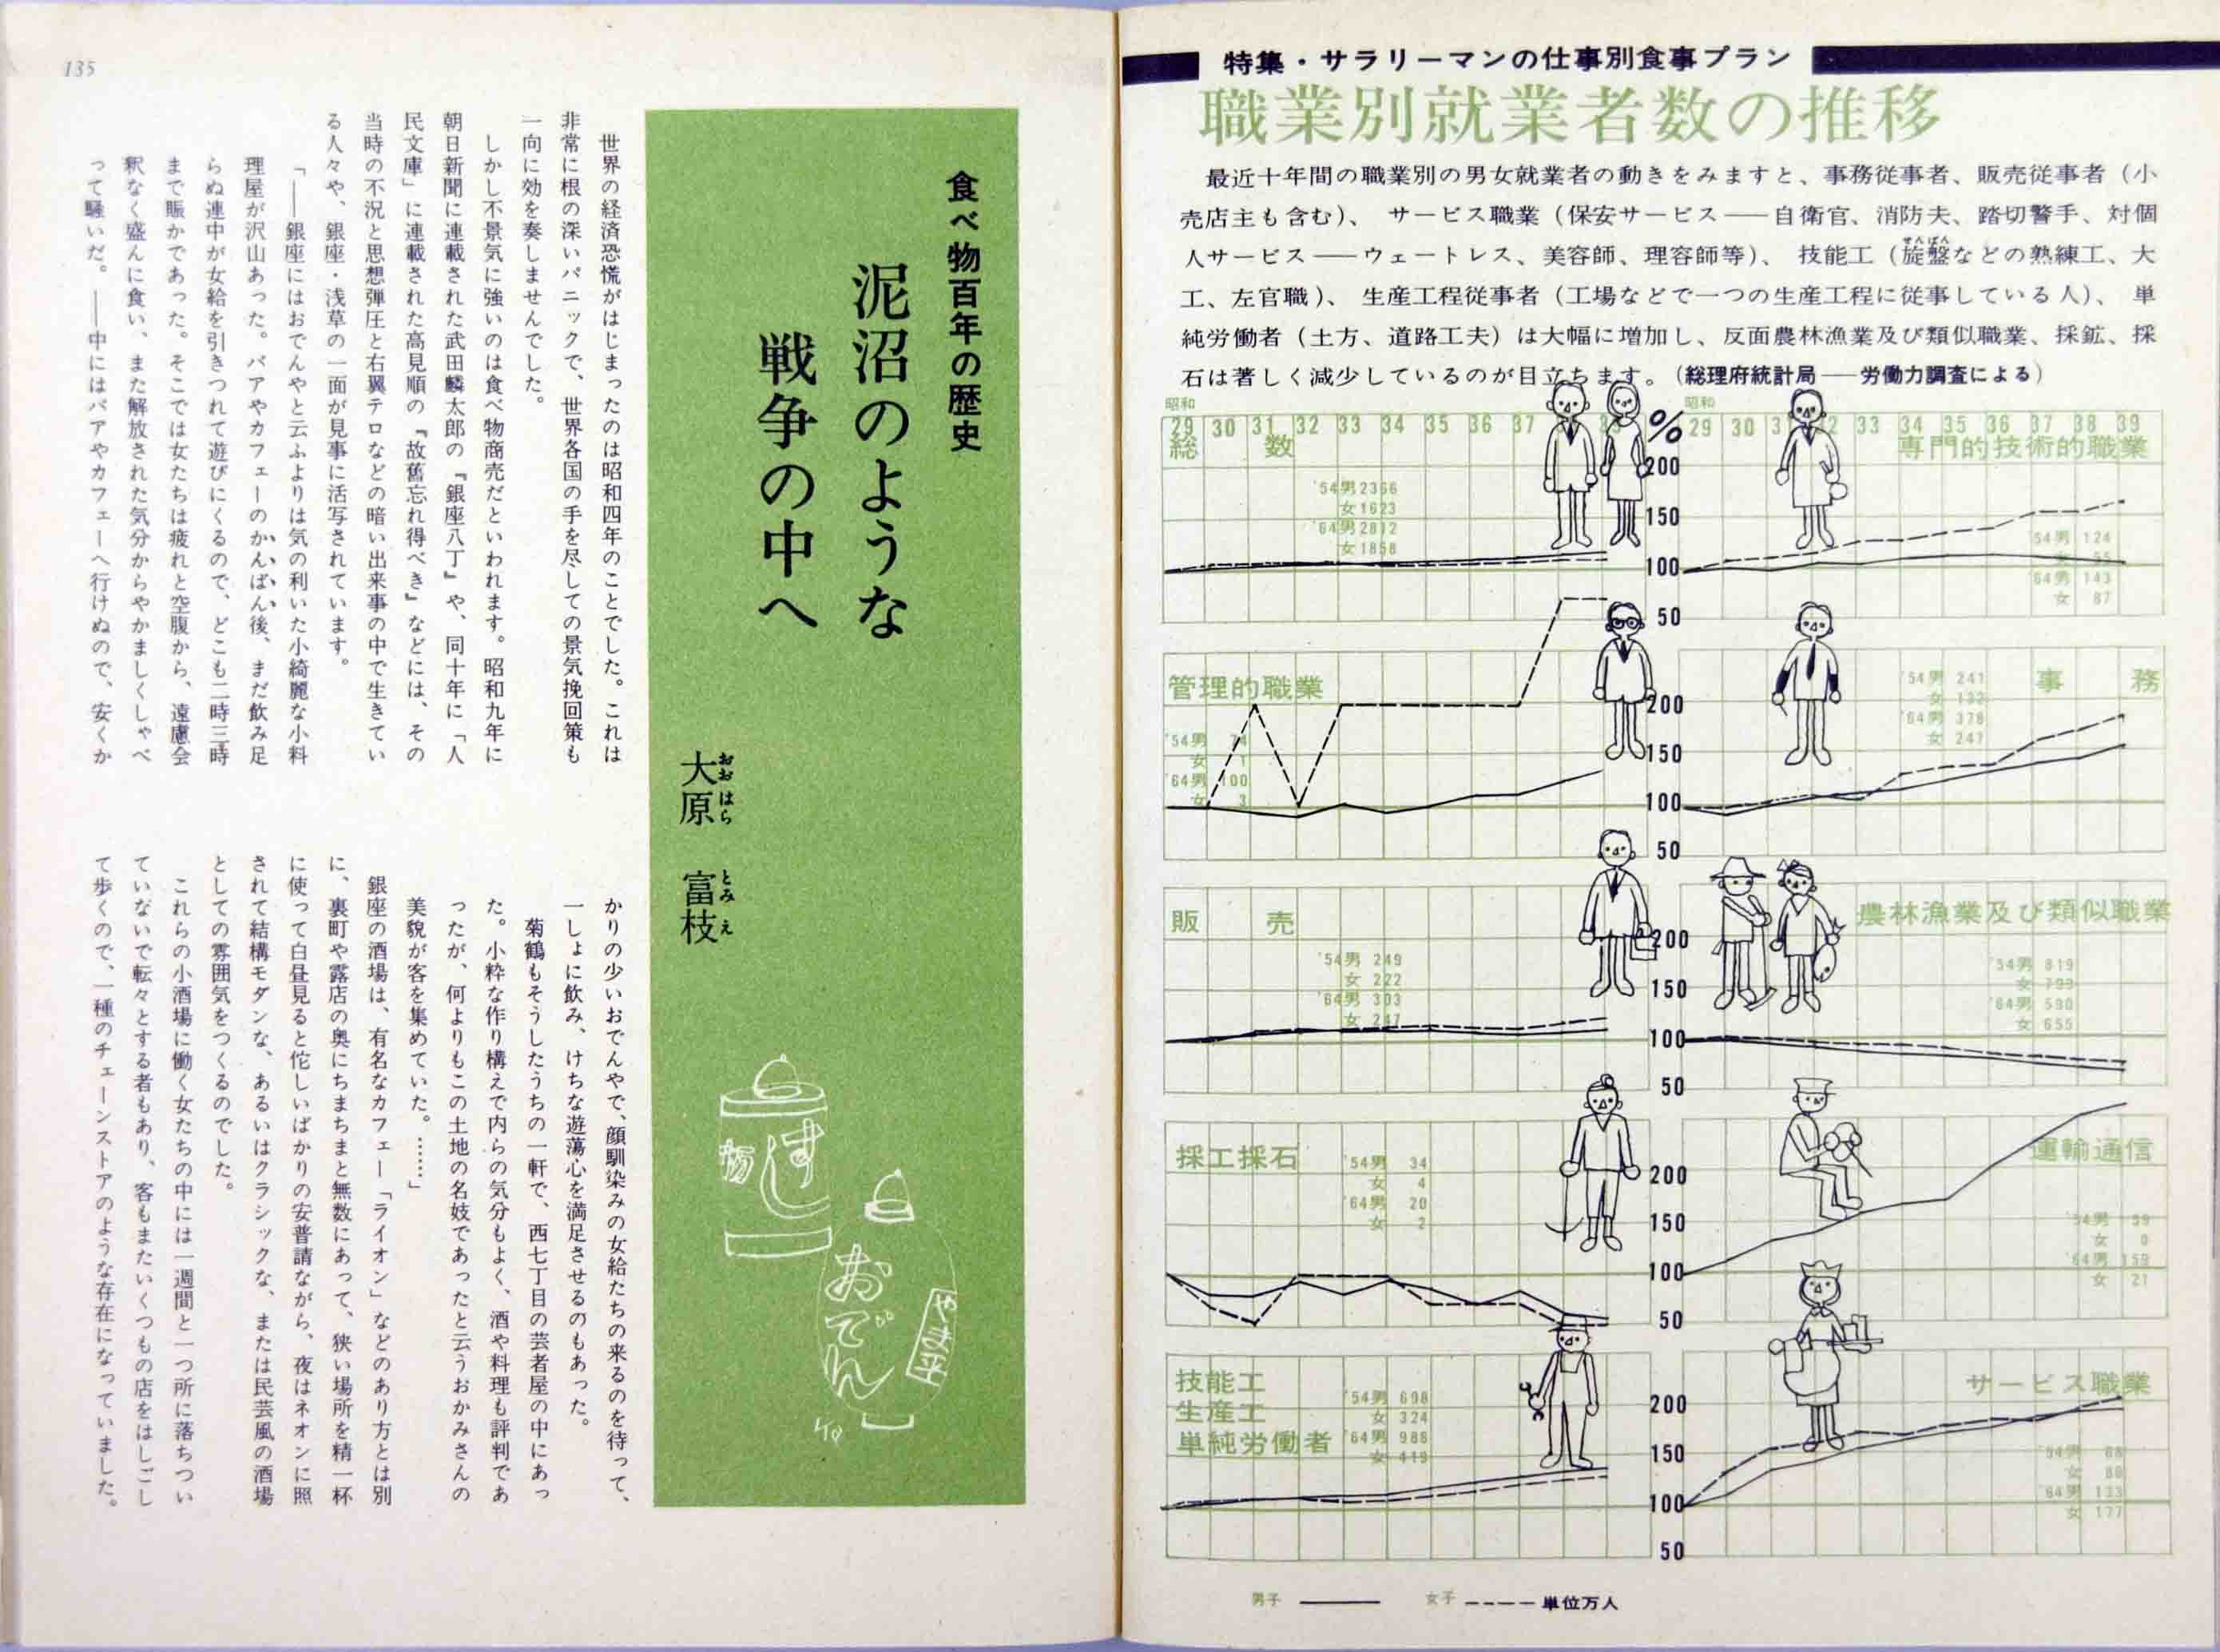 特集・サラリーマンの仕事別食事プラン
職業別就業者数の推移
最近十年間の職業別の男女就業者の動きをみますと、事務従事者、販売従事者（小
売店主も含む）、サービス職業（保安サービス――自衛官、消防夫、踏切警手、対個
人サービス――ウェートレス、美容師、理容師等）、技能工（旋盤などの熟練工、大
せんばん
工、左官職）、生産工程従事者（工場などで一つの生産工程に従事している人）、単
純労働者（土方、道路工夫）は大幅に増加し、反面農林漁業及び類似職業、採鉱、採
石は著しく減少しているのが目立ちます。（総理府統計局――労働力調査による）
昭和
29 30 31 32 33 34 35 36 37
%
昭和
29 30 33 34 35 36 37 38 39
総数
'54男2366
女1623
'64男2812
女1858
200
150
100
50
専門的技術的職業
'54男 124
女 55
'64男 143
女 87
管理的職業
'54男 74
女 1
'64男 100
女 3
200
150
100
50
事務
'54男 241
女 132
'64男 378
女 247
販売
'54男 249
女 222
'64男 303
女 247
200
150
100
50
農林漁業及び類似職業
'54男 819
女 799
'64男 590
女 655
採工採石
'54男 34
女 4
'64男 20
女 2
200
150
100
50
運輸通信
'54男 59
女 0
'64男 159
女 21
技能工
生産工
単純労働者
'54男 698
女 324
'64男 988
女 419
200
150
100
50
サービス職業
'54男 68
女 88
'64男 133
女 177
男子 ―― 女子 ---- 単位万人
食べ物百年の歴史
泥沼のような
戦争の中へ
大原　富枝
おおはら　とみえ
すし
おでん
やき平
世界の経済恐慌がはじまったのは昭和四年のことでした。これは
非常に根の深いパニックで、世界各国の手を尽しての景気挽回策も
一向に効を奏しませんでした。
しかし不景気に強いのは食べ物商売だといわれます。昭和九年に
朝日新聞に連載された武田麟太郎の『銀座八丁』や、同十年に「人
民文庫」に連載された高見順の『故舊忘れ得べき』などには、その
当時の不況と思想弾圧と右翼テロなどの暗い出来事の中で生きてい
る人々や、銀座・浅草の一面が見事に活写されています。
「――銀座にはおでんやと云ふよりは気の利いた小綺麗な小料
理屋が沢山あった。バアやカフェーのかんばん後、まだ飲み足
らぬ連中が女給を引きつれて遊びにくるので、どこも二時三時
まで賑かであった。そこでは女たちは疲れと空腹から、遠慮会
釈なく盛んに食い、また解放された気分からやかましくしゃべ
って騒いだ。――中にはバアやカフェーへ行けぬので、安くか
かりの少いおでんやで、顔馴染みの女給たちの来るのを待って、
一しょに飲み、けちな遊蕩心を満足させるのもあった。
菊鶴もそうしたうちの一軒で、西七丁目の芸者屋の中にあっ
た。小粋な作り構えで内らの気分もよく、酒や料理も評判であ
ったが、何よりもこの土地の名妓であったと云うおかみさんの
美貌が客を集めていた。……」
銀座の酒場は、有名なカフェー「ライオン」などのあり方とは別
に、裏町や露店の奥にちまちまと無数にあって、狭い場所を精一杯
に使って白昼見ると佗しいばかりの安普請ながら、夜はネオンに照
されて結構モダンな、あるいはクラシックな、または民芸風の酒場
としての雰囲気をつくるのでした。
これらの小酒場に働く女たちの中には一週間と一つ所に落ちつい
ていないで転々とする者もあり、客もまたいくつもの店をはしごし
て歩くので、一種のチェーンストアのような存在になっていました。
135